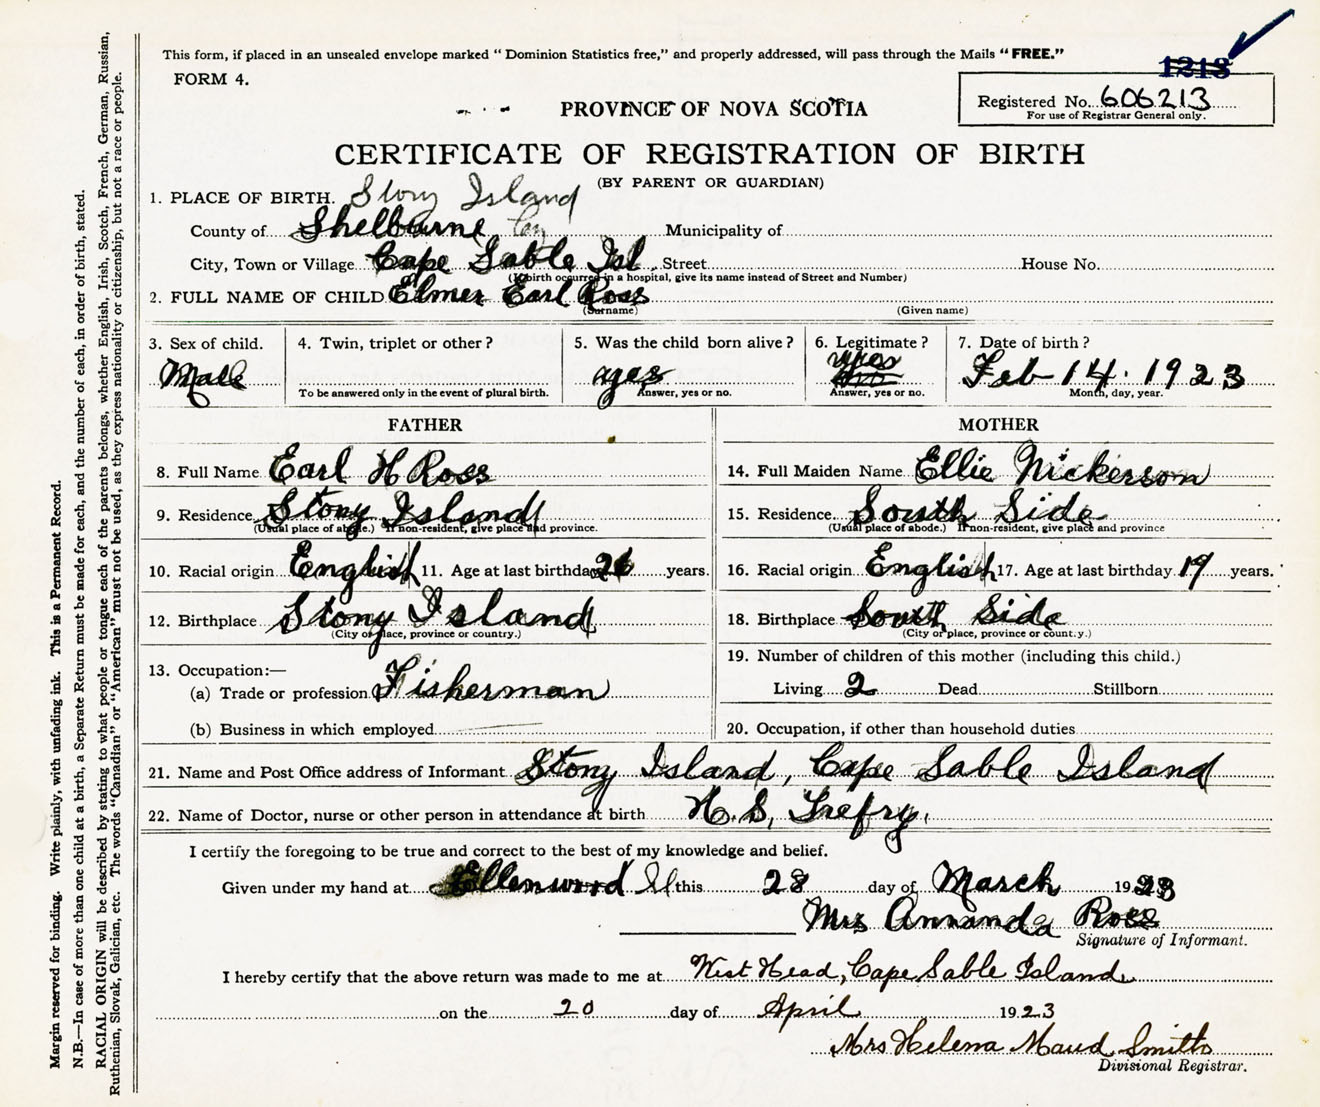 This form, if placed in an unsealed envelope marked "Dominion Statistics free," and properly addressed, will pass through the Mails "FREE."
FORM 4.
1213
Registered No. 606213
For use of Registrar General only.
PROVINCE OF NOVA SCOTIA
CERTIFICATE OF REGISTRATION OF BIRTH
(BY PARENT OR GUARDIAN)
1. PLACE OF BIRTH. Stony Island
County of Shelburne Municipality of
City, Town or Village Cape Sable Isl. Street House No.
(If birth occurred in a hospital, give its name instead of Street and Number)
2. FULL NAME OF CHILD Elmer Earl Ross
(Surname) (Given name)
3. Sex of child. 4. Twin, triplet or other? 5. Was the child born alive? 6. Legitimate? 7. Date of birth?
Male yes yes Feb 14. 1923
To be answered only in the event of plural birth. Answer, yes or no. Answer, yes or no. Month, day, year.
FATHER MOTHER
8. Full Name Earl H Ross 14. Full Maiden Name Ellie Nickerson
9. Residence Stony Island 15. Residence South Side
(Usual place of abode.) If non-resident, give place and province. (Usual place of abode.) If non-resident, give place and province
10. Racial origin English 11. Age at last birthday years. 16. Racial origin English 17. Age at last birthday 19 years.
12. Birthplace Stony Island 18. Birthplace South Side
(City or place, province or country.) (City or place, province or country.)
13. Occupation:— 19. Number of children of this mother (including this child.)
(a) Trade or profession Fisherman Living 2 Dead Stillborn
(b) Business in which employed 20. Occupation, if other than household duties
21. Name and Post Office address of Informant Stony Island, Cape Sable Island
22. Name of Doctor, nurse or other person in attendance at birth H. S. Trefry.
I certify the foregoing to be true and correct to the best of my knowledge and belief.
Given under my hand at Ellenwood this 28 day of March 1923
Mrs Annanda Ross
Signature of Informant.
I hereby certify that the above return was made to me at West Head, Cape Sable Island
on the 20 day of April 1923
Mrs Helena Maud Smith
Divisional Registrar.
Margin reserved for binding. Write plainly, with unfading ink. This is a Permanent Record.
N.B.—In case of more than one child at a birth, a Separate Return must be made for each, and the number of each, in order of birth, stated.
RACIAL ORIGIN will be described by stating to what people or tongue each of the parents belongs, whether English, Irish, Scotch, French, German, Russian,
Ruthenian, Slovak, Galician, etc. The words "Canadian" or "American" must not be used, as they express nationality or citizenship, but not a race or people.